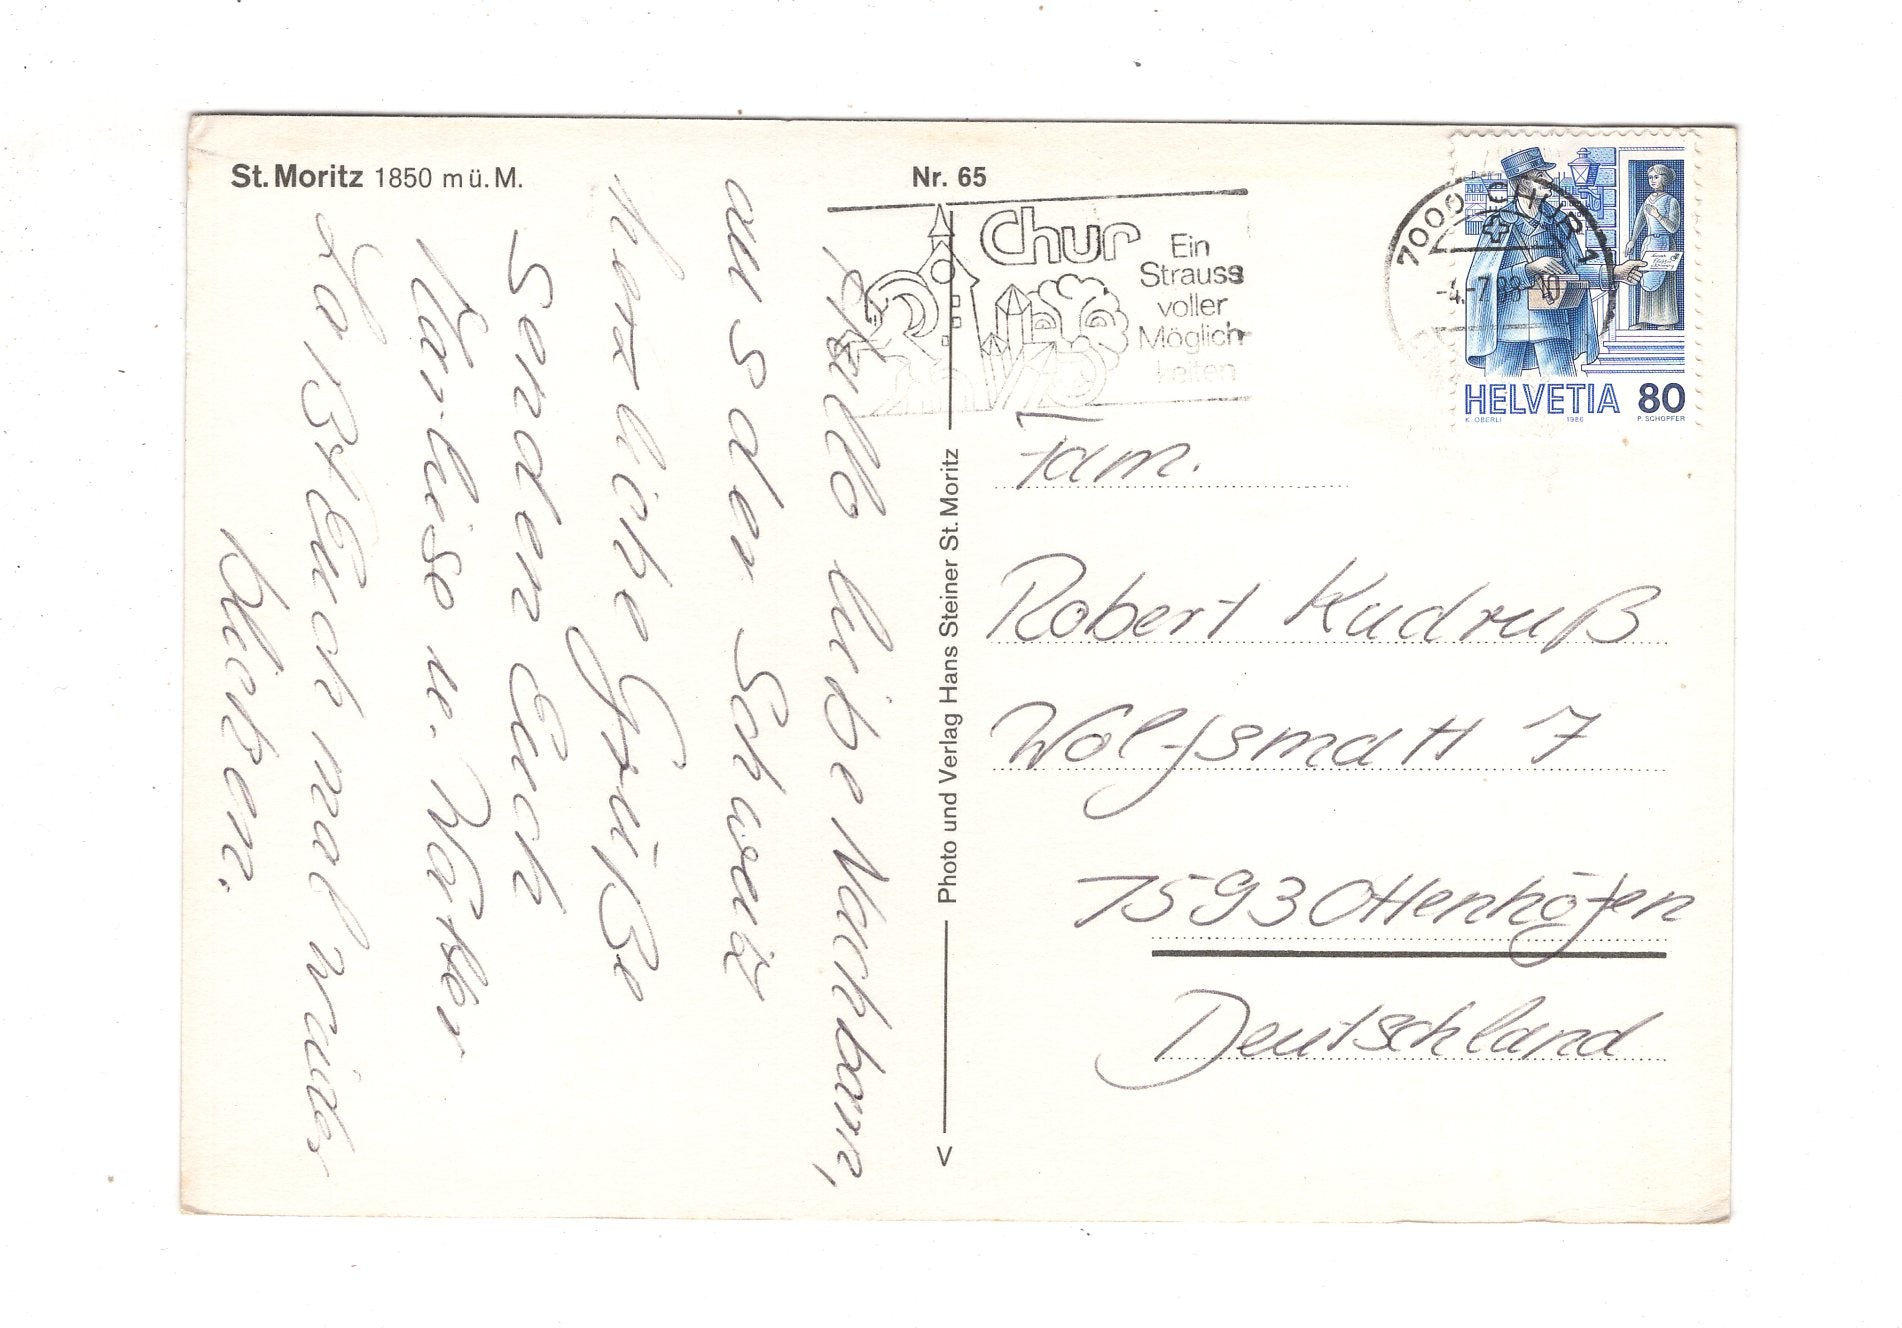 St. Moritz 1850 m ü. M.
Nr. 65
Chur
Ein
Strauss
voller
Möglich
keiten
7000 CHUR 1
-4.-7.
HELVETIA 80
K. OBERLI 1986 P. SCHOPFER
Photo und Verlag Hans Steiner St. Moritz
Hallo liebe Nachbarn,
aus der Schweiz
herzliche Grüße
senden Euch
Marliese u. Walter
Laßt Euch mal wieder
blicken.
Fam.
Robert Kudruß
Wolfsmatt 7
7593 Ottenhöfen
Deutschland